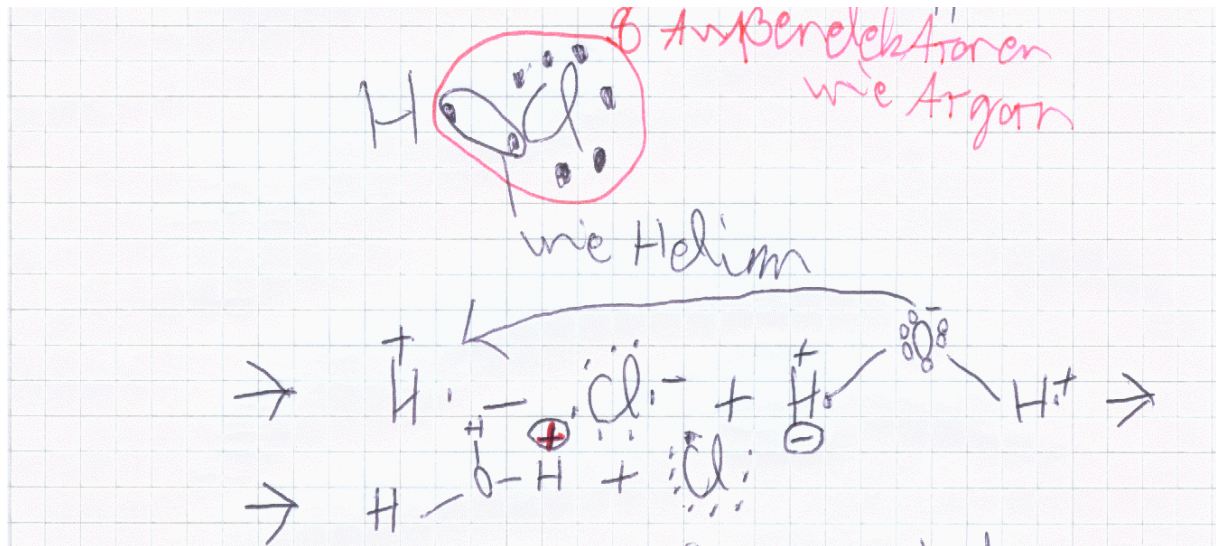 8 Außenelektronen
wie Argon
H Cl
wie Helium
→ H⁺ – Cl⁻ + H⁺ O⁻ H⁺ →
→ H O H H ⊕ + Cl ⊖